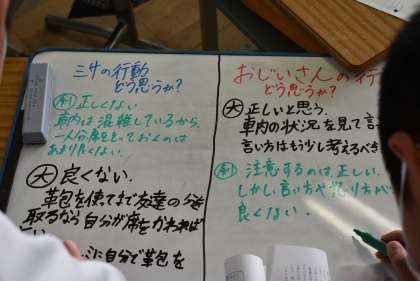 三サの行動
どう思うか?
正しくない。
車内は混雑しているから、
一人分席をとっておくのは
あまり良くない。
大 良くない。
革包を使てまで友達の分
取るなら自分が席をかわれば
に自分で革包を
おじいさんの行
どう思うか?
大 正しいと思う。
車内の状況を見て言
言い方はもう少し考えるべき
注意するのは、正しい。
しかし、言い方や 方が
良くない。